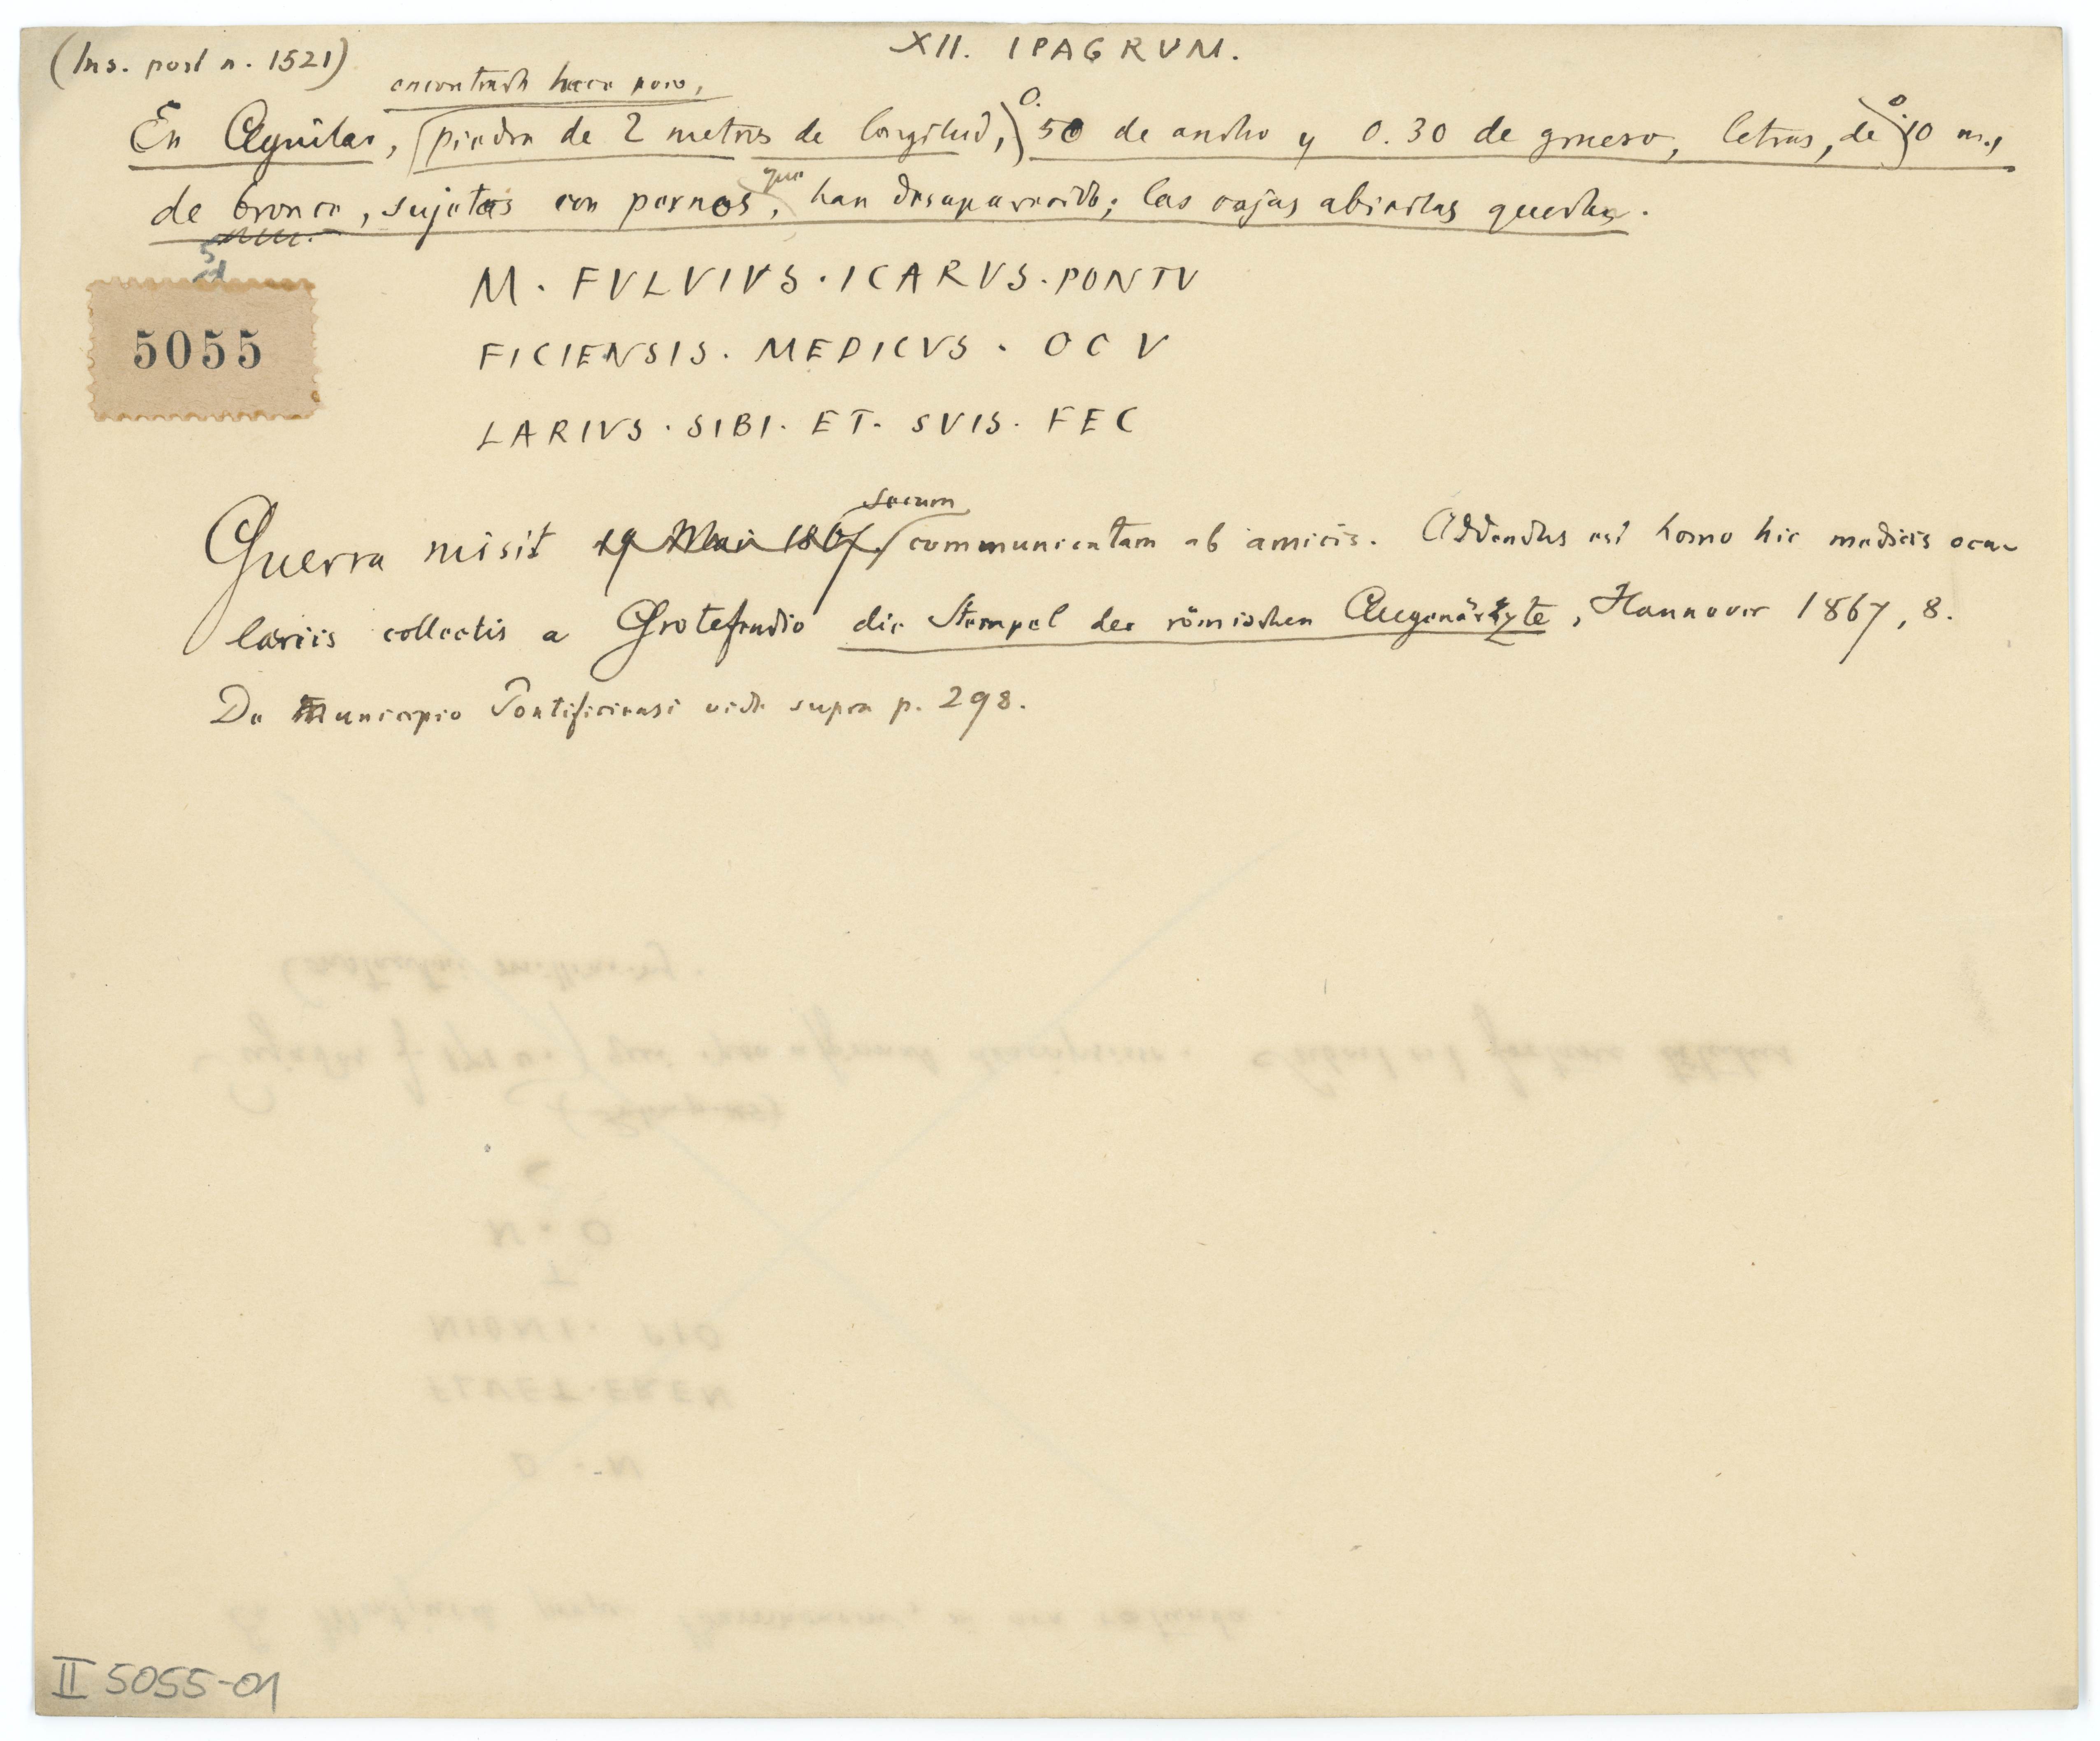 (Ins. post n. 1521)
XII. IPAGRVM.
encontrada hace poco,
En Aguilar, piedra de 2 metros de longitud, 0. 50 de ancho y 0.30 de grueso, letras, de 0. 10 m.,
de bronce, sujetas con pernos, que han desaparecido; las cajas abiertas quedan.
5055
M · FVLVIVS · ICARVS · PONTV
FICIENSIS · MEDICVS · OCV
LARIVS · SIBI · ET · SVIS · FEC
Guerra misit 19 Mai 1867. secum communicatam ab amicis. Addendus est homo hic medicis ocu-
lariis collectis a Grotefendio die Stempel der römischen Augenärzte, Hannover 1867, 8.
De municipio Pontificiensi vide supra p. 298.
II 5055-01